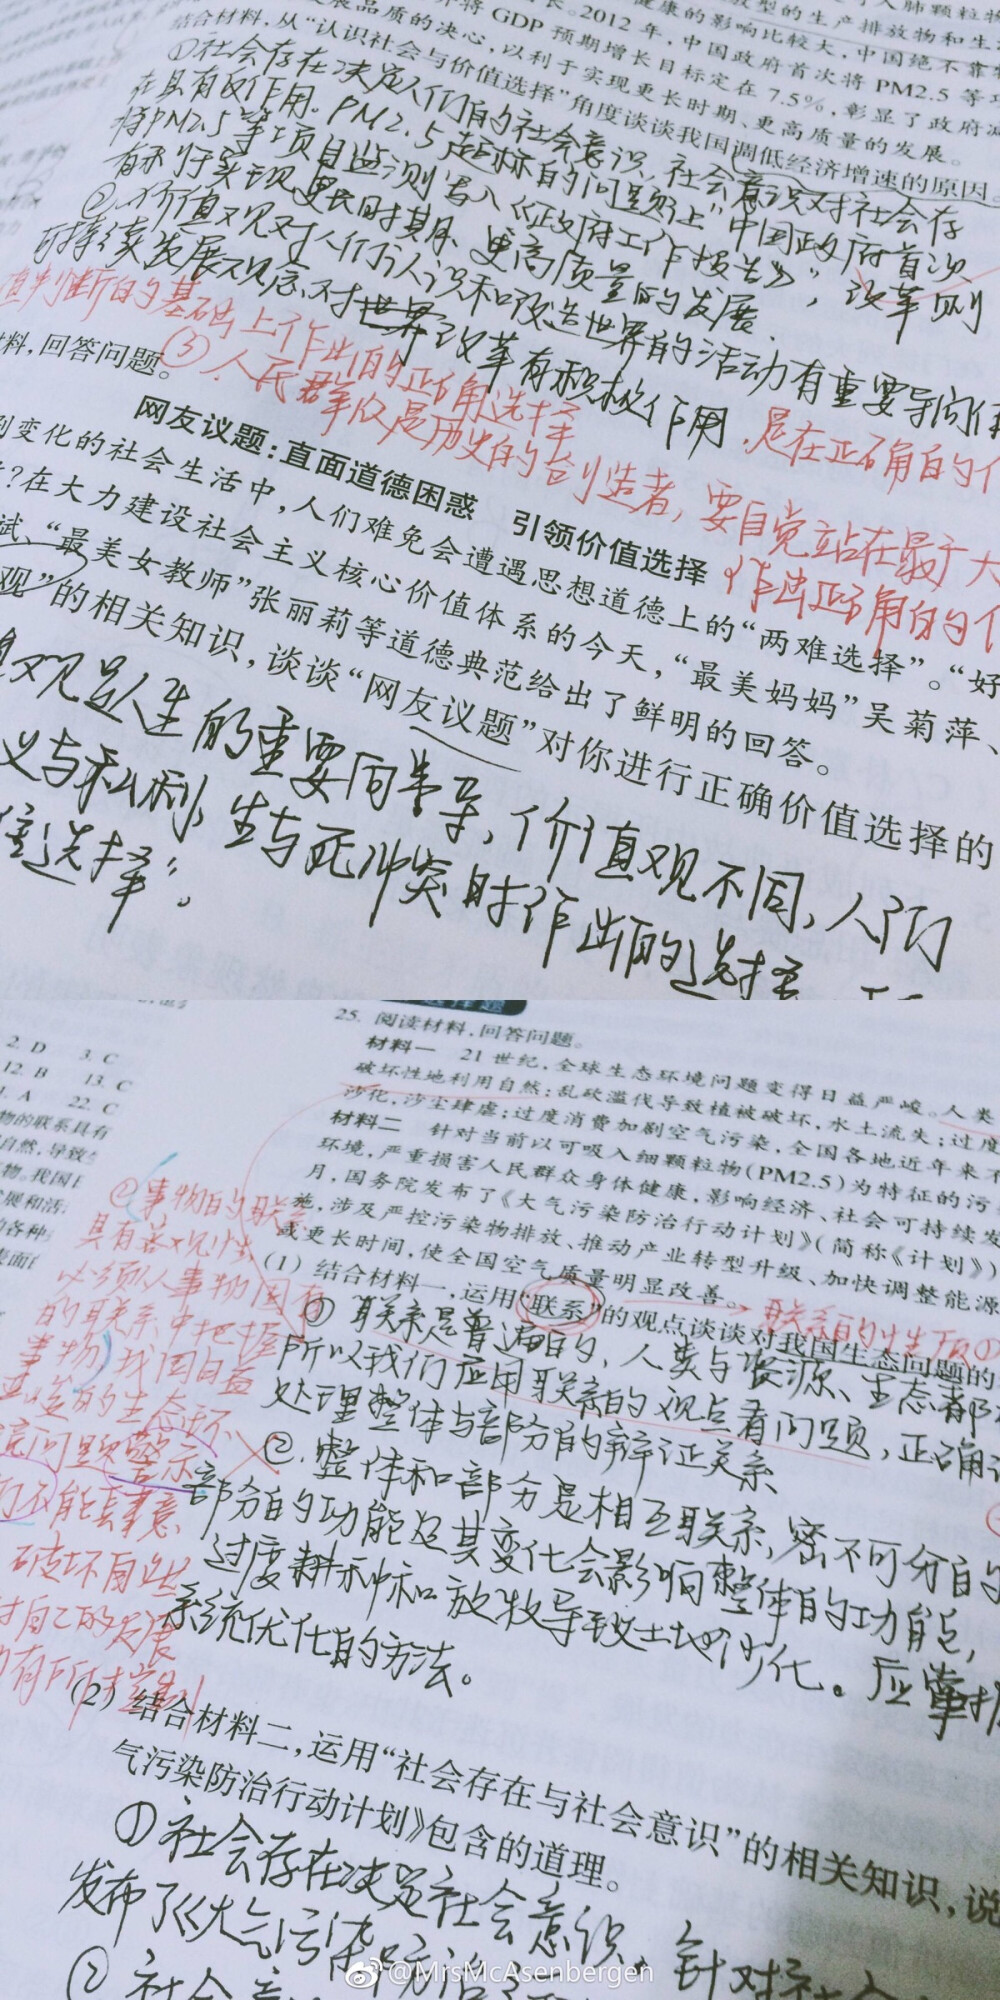 健康的影响比较大，中国绝不靠
GDP 预期增长目标定在 7.5%，彰显了政府
展品质的决心，以利于实现更长时期、更高质量的发展。
长。2012 年，中国政府首次将 PM2.5 等
结合材料，从“认识社会与价值选择”角度谈谈我国调低经济增速的原因。
①社会存在决定人们的社会意识，社会意识对社会存
在具有反作用。PM2.5超标的问题让“中国政府首次
将PM2.5等项目监测写入《政府工作报告》”，改革则
有利于实现更长时期、更高质量的发展
②.价值观对人们认识和改造世界的活动有重要导向
可持续发展观念对世界改革有积极作用
，是在正确的
值判断的基础上作出的正确选择
③.人民群众是历史的创造者，要自觉站在最广大
作出正确的
材料，回答问题。
网友议题：直面道德困惑 引领价值选择
到变化的社会生活中，人们难免会遭遇思想道德上的“两难选择”。“好
？在大力建设社会主义核心价值体系的今天，“最美妈妈”吴菊萍、
斌、“最美女教师”张丽莉等道德典范给出了鲜明的回答。
观”的相关知识，谈谈“网友议题”对你进行正确价值选择的
观是人生的重要向导，价值观不同，人们
义与私利，生与死冲突时作出的选择
选择”。
25. 阅读材料，回答问题。
材料一 21 世纪，全球生态环境问题变得日益严峻。人类
破坏性地利用自然：乱砍滥伐导致植被破坏，水土流失；过度
沙化，沙尘肆虐；过度消费加剧空气污染，全国各地近年来不
材料二 针对当前以可吸入细颗粒物(PM2.5)为特征的污
环境，严重损害人民群众身体健康，影响经济、社会可持续发
月，国务院发布了《大气污染防治行动计划》(简称《计划》)
施，涉及严控污染物排放、推动产业转型升级、加快调整能源
或更长时间，使全国空气质量明显改善。
(1) 结合材料一，运用“联系”的观点谈谈对我国生态问题的
①联系是普遍的，人类与资源、生态都
所以我们应用联系的观点看问题，正确
处理整体与部分的辩证关系
②.整体和部分是相互联系，密不可分的
部分的功能及其变化会影响整体的功能，
过度耕种和放牧导致土地沙化。应掌握
系统优化的方法。
2. D 3. C
12. B 13. C
A 22. C
物的联系具有
自然，导致
②事物的联系
具有客观性
必须从事物固有
的联系中把握
事物，我国日益
的生态环
境问题警示
们不能
破坏自然
(2) 结合材料二，运用“社会存在与社会意识”的相关知识，说
气污染防治行动计划》包含的道理。
①社会存在决定社会意识，针对
发布了《大气污染防治
②社会
@MrsMcAsenbergen